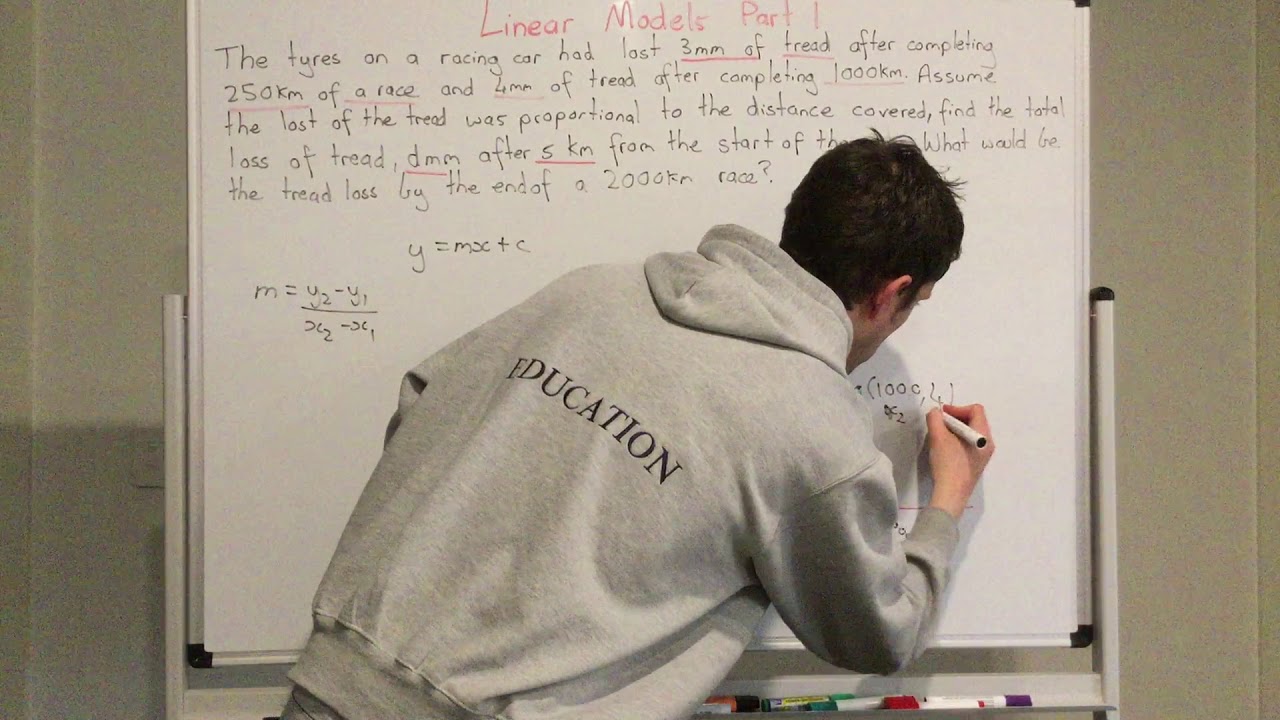 Linear Models Part 1
The tyres on a racing car had lost 3mm of tread after completing
250km of a race and 4mm of tread after completing 1000km. Assume
the lost of the tread was proportional to the distance covered, find the total
loss of tread, dmm after 5 km from the start of the What would be
the tread loss by the end of a 2000km race?
y = mx + c
m = y₂ - y₁
x₂ - x₁
EDUCATION
(1000, 4)
x₂